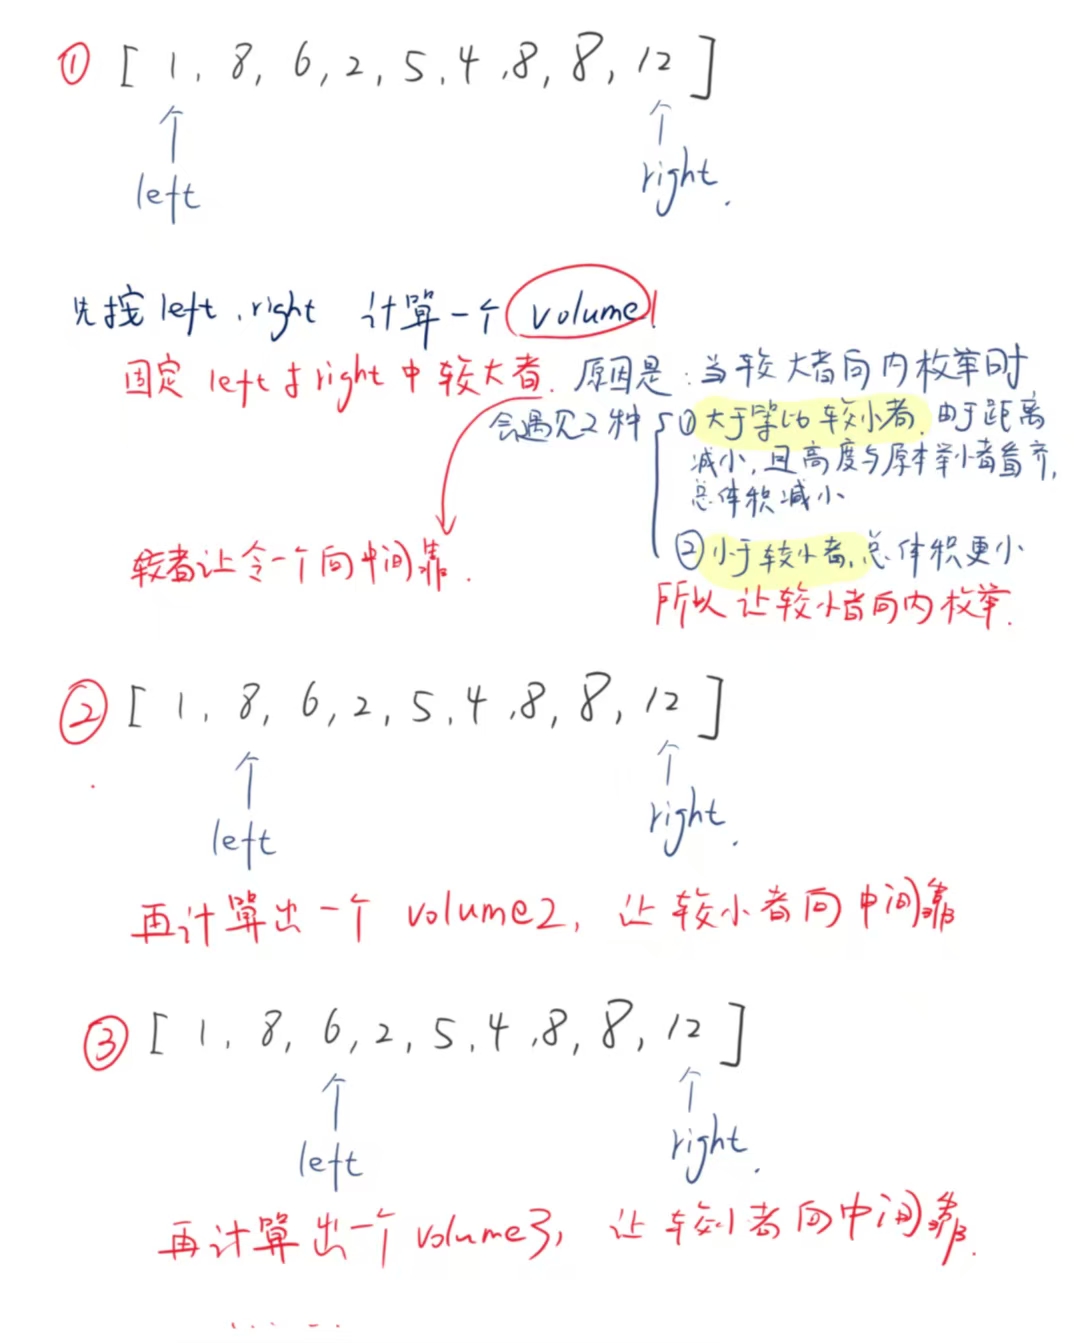 ① [ 1, 8, 6, 2, 5, 4, 8, 8, 12 ]
left
right.
先按 left, right 计算一个 volume1
固定 left 与 right 中较大者. 原因是: 当较大者向内枚举时
会遇见2种
① 大于等于 较小者. 由于距离
减小, 且高度与原本 小者看齐,
总体积减小
较者让令一个向中间靠.
② 小于较小者, 总体积更小
所以让较小者向内枚举.
② [ 1, 8, 6, 2, 5, 4, 8, 8, 12 ]
left
right.
再计算出一个 volume2, 让较小者向中间靠
③ [ 1, 8, 6, 2, 5, 4, 8, 8, 12 ]
left
right.
再计算出一个 volume3, 让较小者向中间靠.